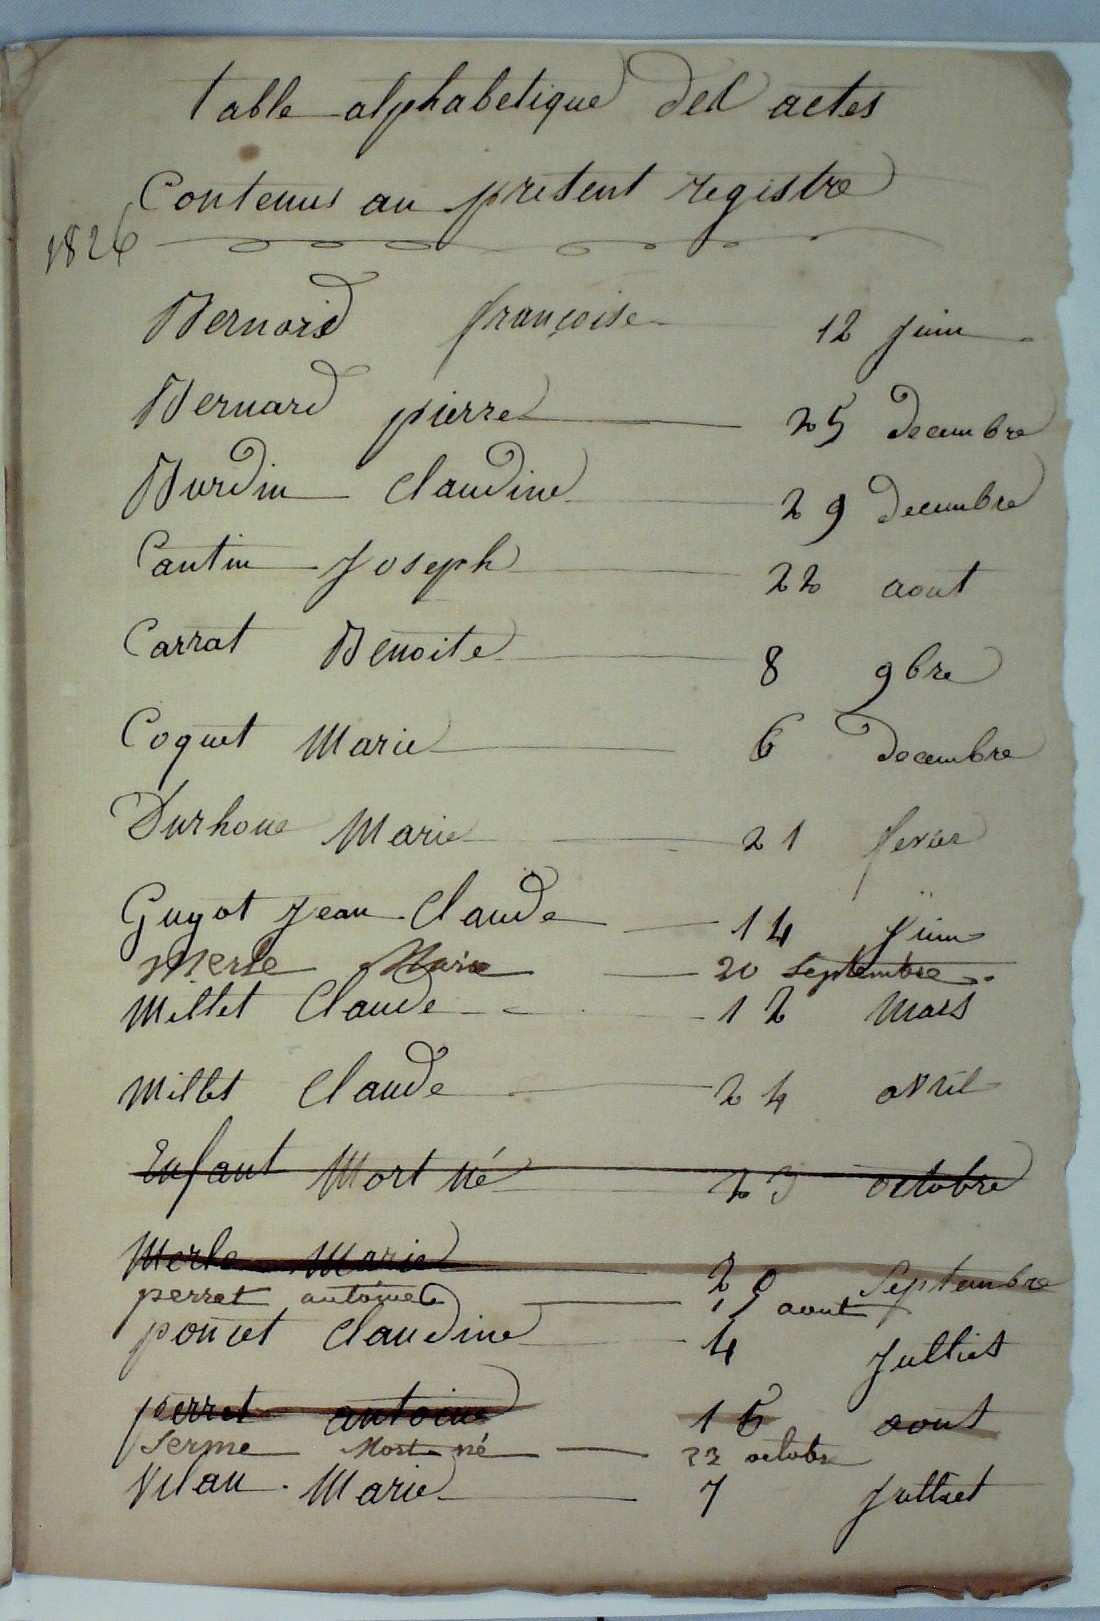 table alphabetique des actes
Contenus au present registre
1826
Bernard françoise 12 juin
Bernard pierre 25 decembre
Burdin Claudine 29 decembre
Cantin Joseph 22 aout
Carrat Benoite 8 9bre
Coquet Marie 6 decembre
Durhone Marie 21 fevrier
Guyot Jean Claude 14 juin
Merle Marie 20 septembre
Millet Claude 12 Mars
Millet Claude 24 avril
Enfant Mort né 23 octobre
Merle Marie 20 Septembre
perret antoine 15 aout
poncet Claudine 4 Julliet
perret antoine 15 aout
Serme Mort né 23 octobre
Marie 7 Julliet